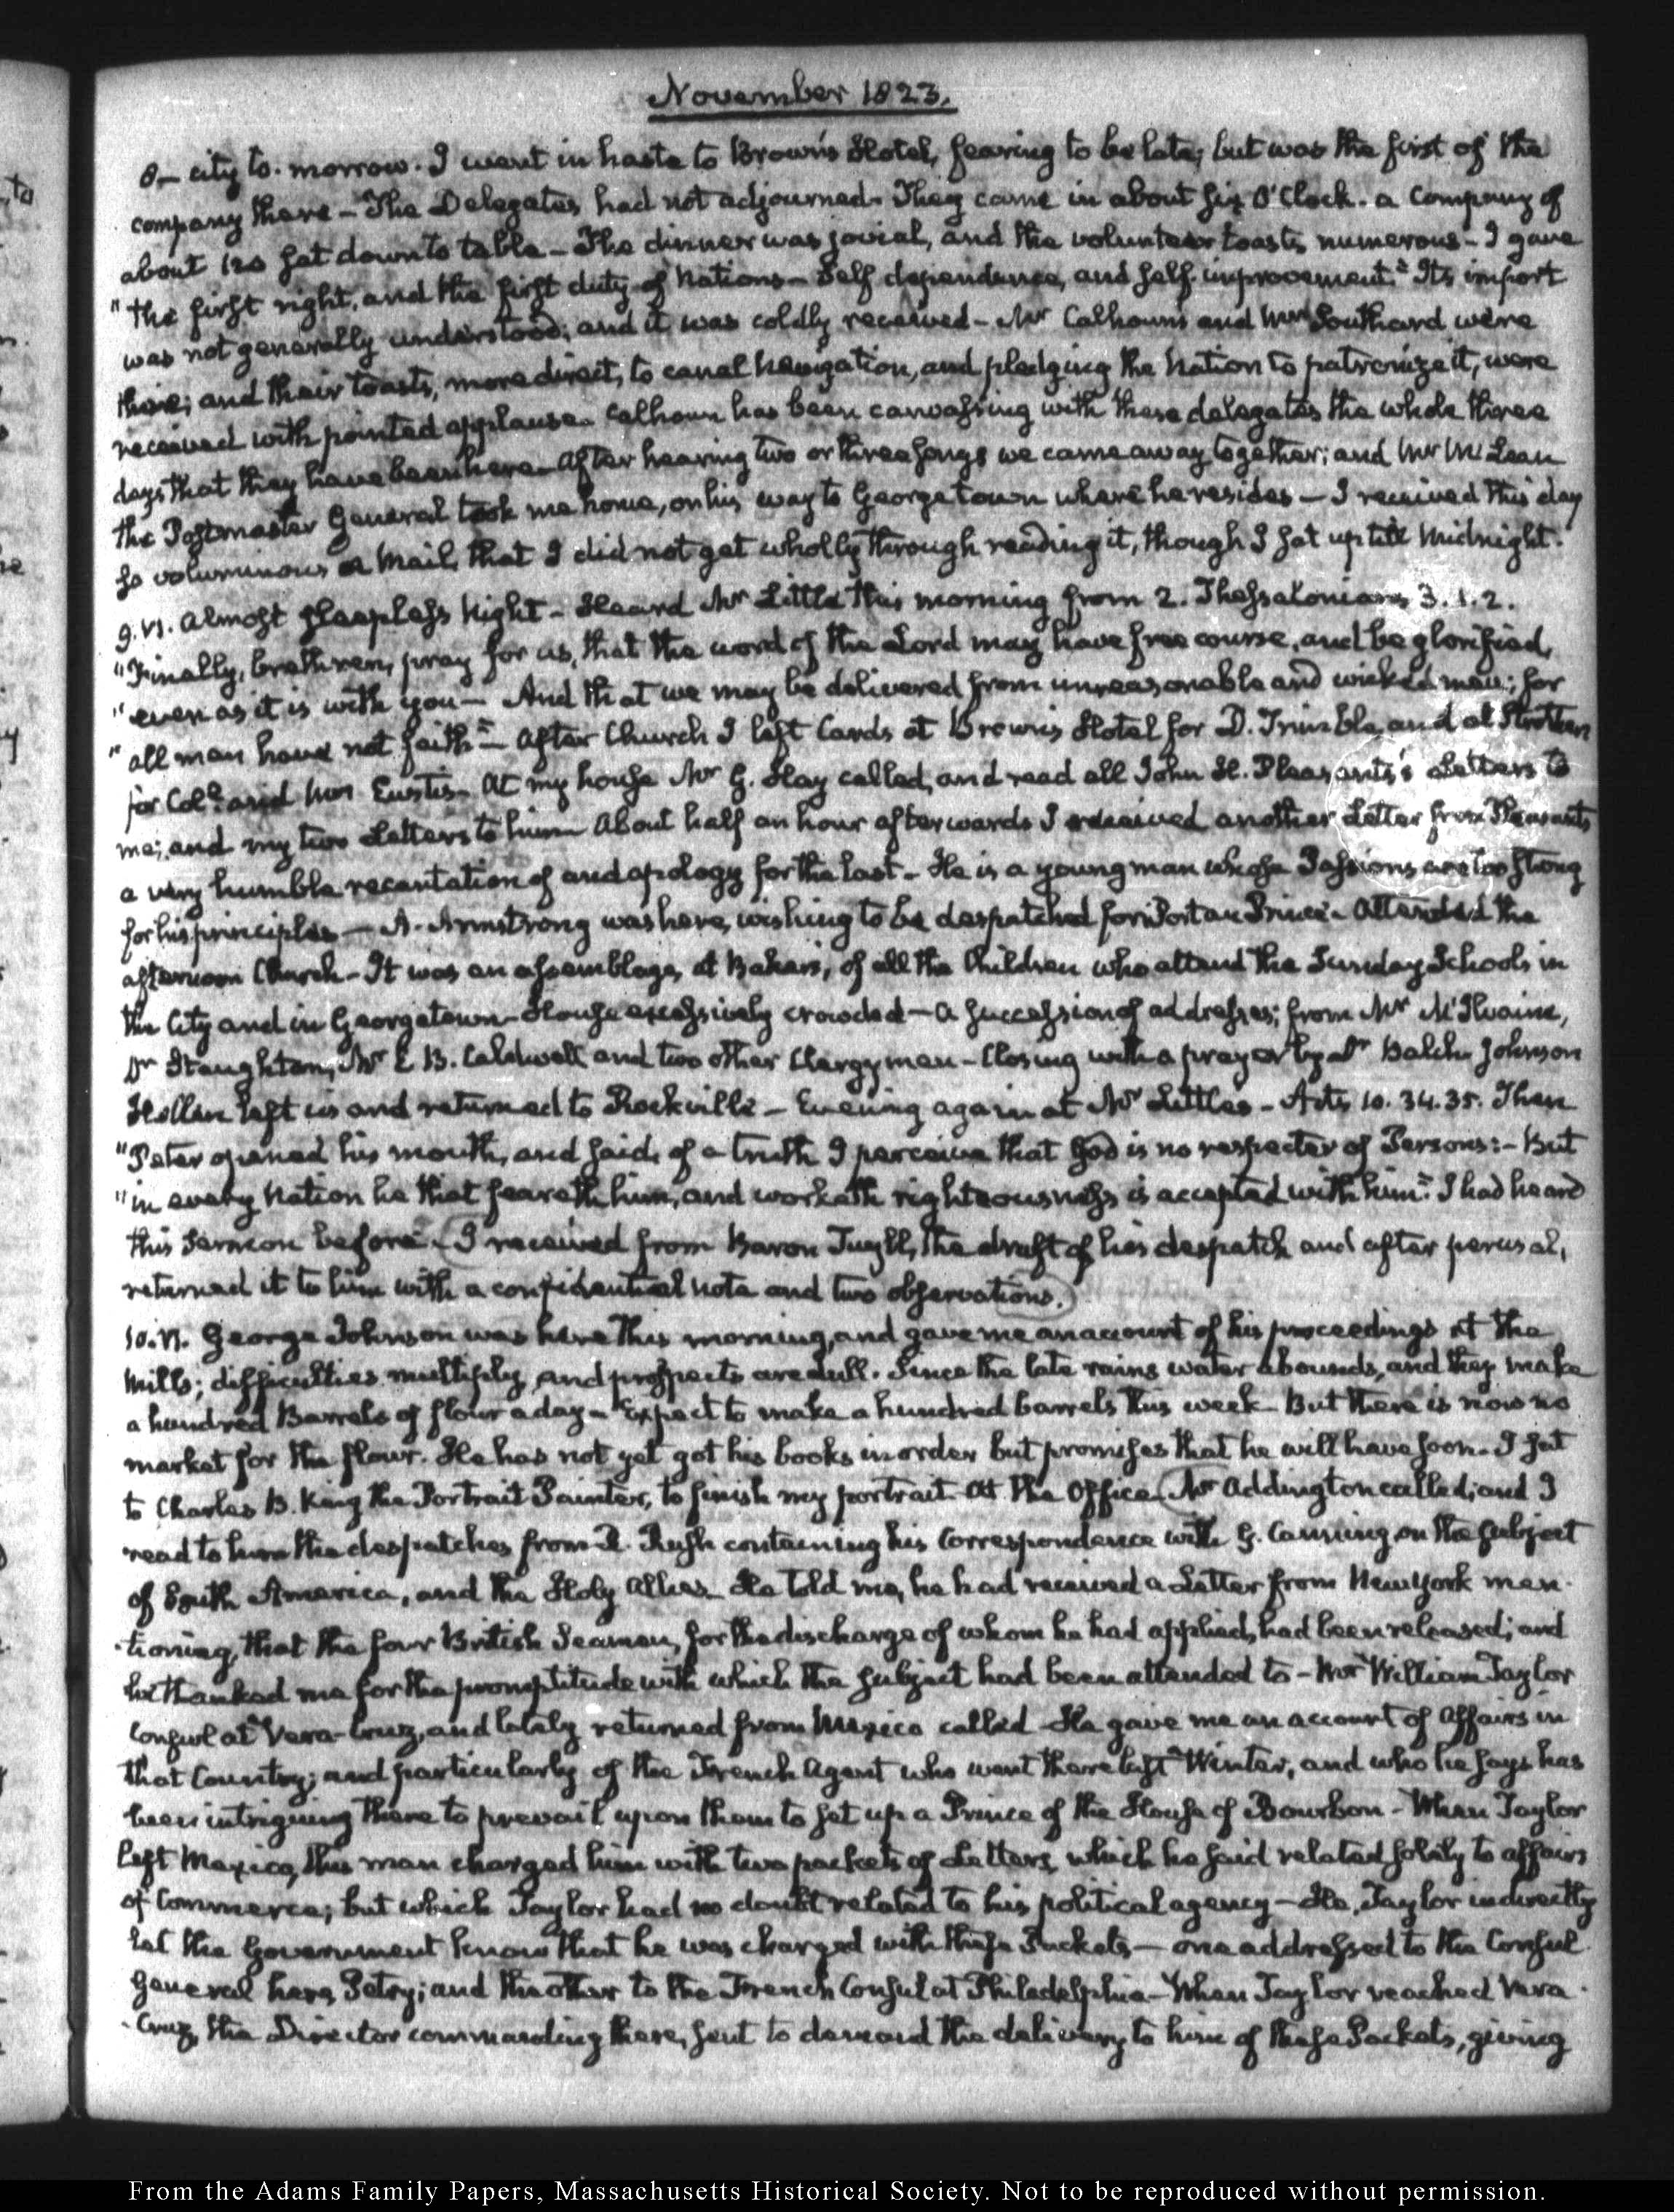 November 1823.
8— city to-morrow. I went in haste to Brown's Hotel, fearing to be late; but was the first of the
company there— The Delegates had not adjourned— They came in about six O'Clock. a Company of
about 120 sat down to table— The dinner was jovial, and the volunteer toasts numerous— I gave
"the first right, and the first duty of Nations— Self dependence, and self-improvement." Its import
was not generally understood; and it was coldly received— Mr Calhoun's and Mr Southard were
there; and their toasts, more direct, to canal Navigation, and pledging the Nation to patronize it, were
received with pointed applause. Calhoun has been canvassing with these delegates the whole three
days that they have been here— After hearing two or three songs we came away together; and Mr McLean
the Postmaster General took me home, on his way to Georgetown where he resides— I received this day
so voluminous a Mail, that I did not get wholly through reading it, though I sat up till Midnight.
9. VI. Almost sleepless Night— Heard Mr Little this morning from 2. Thessalonians 3. 1. 2.
"Finally, brethren, pray for us, that the word of the Lord may have free course, and be glorified,
"even as it is with you— And that we may be delivered from unreasonable and wicked men; for
"all men have not faith"— After Church I left Cards at Brown's Hotel for D. Trimble, and at Strothers
for Coll. and Mrs Eustis— At my house Mr G. Hay called, and read all John H. Pleasants's Letters to
me; and my two Letters to him— About half an hour afterwards I received another Letter from Pleasants
a very humble recantation of and apology for the last— He is a young man whose Passions are too strong
for his principles— A. Armstrong was here, wishing to be despatched for Port au Prince— Attended the
afternoon Church— It was an assemblage, at Baker's, of all the Children who attend the Sunday Schools in
the City and in Georgetown— House excessively crowded— a succession of addresses; from Mr McIlvaine,
Dr Staughton, Mr E. B. Caldwell and two other Clergymen— Closing with a prayer by Dr Balch. Johnson
Hellen left us and returned to Rockville— Evening again at Mr Littles— Acts 10. 34. 35. Then
"Peter opened his mouth, and said, of a truth I perceive that God is no respecter of Persons:— But
"in every Nation he that feareth him, and worketh righteousness is accepted with him." I had heard
this Sermon before— I received from Baron Tuyll, the draft of his despatch and after perusal,
returned it to him with a confidential note and two observations.
10. VI. George Johnson was here this morning, and gave me an account of his proceedings at the
Mills; difficulties multiply and prospects are dull. Since the late rains water abounds, and they make
a hundred Barrels of flour a day— Expect to make a hundred barrels this week— But there is now no
market for the flour. He has not yet got his books in order but promises that he will have soon. I sat
to Charles B. King the Portrait Painter, to finish my portrait. At the Office Mr Addington called; and I
read to him the despatches from R. Rush containing his Correspondence with G. Canning on the subject
of South America, and the Holy Allies— He told me, he had received a Letter from New York men-
tioning, that the four British Seamen, for the discharge of whom he had applied, had been released; and
he thanked me for the promptitude with which the subject had been attended to— Mr William Taylor
Consul at Vera-Cruz, and lately returned from Mexico called— He gave me an account of Affairs in
that Country; and particularly of the French Agent who went there last Winter, and who he says has
been intriguing there to prevail upon them to set up a Prince of the House of Bourbon— When Taylor
left Mexico, this man charged him with two packets of Letters, which he said related solely to affairs
of Commerce; but which Taylor had no doubt related to his political agency— He, Taylor indirectly
let the Government know that he was charged with these Packets— one addressed to the Consul
General here, Petry; and the other to the French Consul at Philadelphia— When Taylor reached Vera-
Cruz, the Director commanding there, sent to demand the delivery to him of these Packets, giving
From the Adams Family Papers, Massachusetts Historical Society. Not to be reproduced without permission.